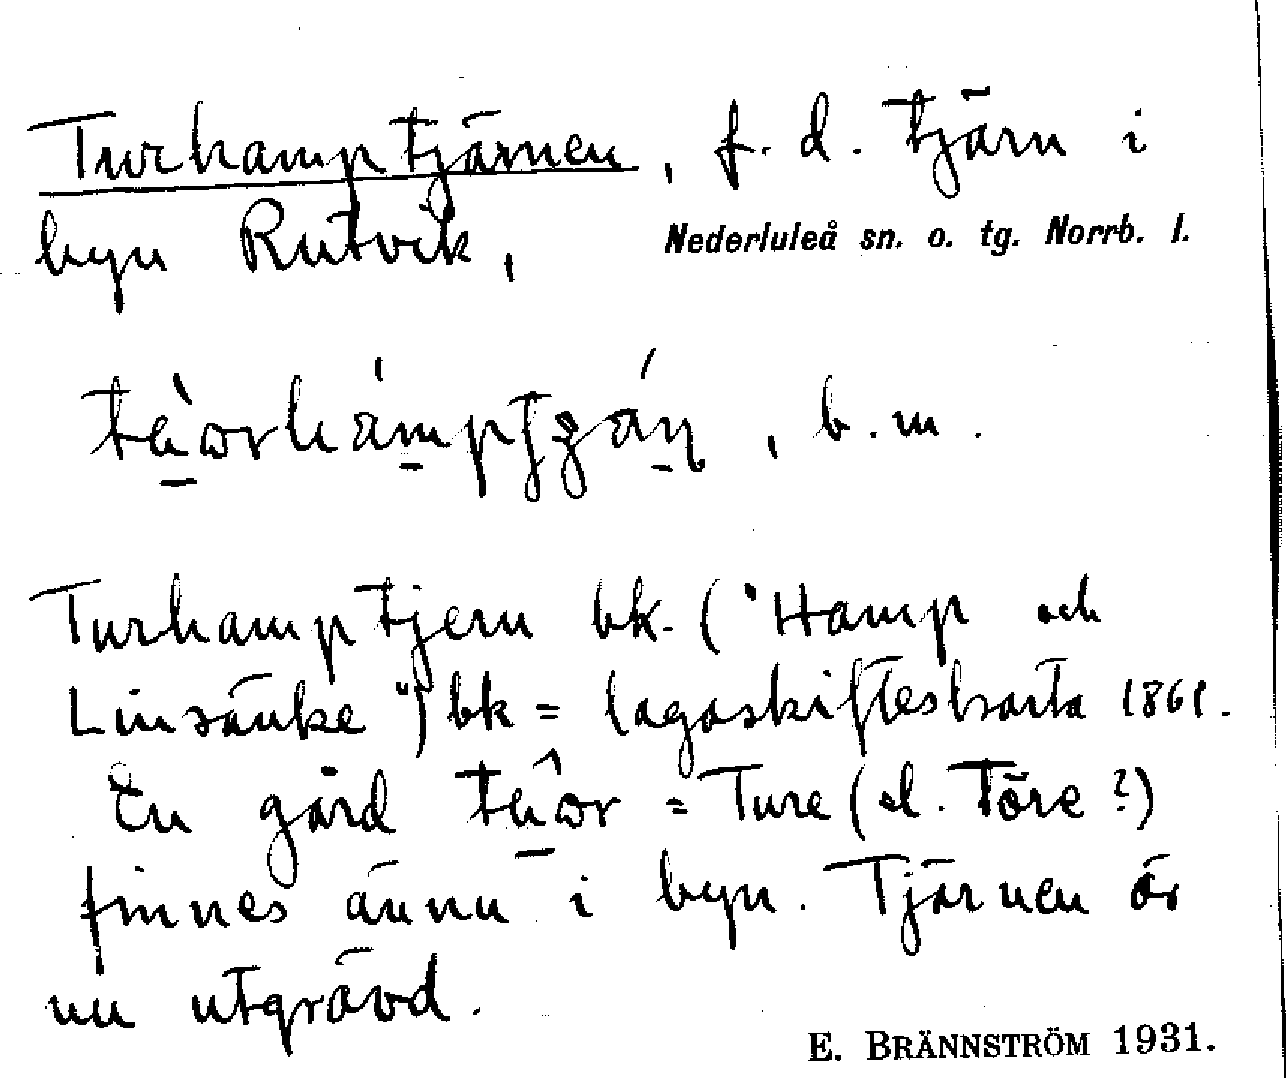 Turhamptjärnen, f.d. tjärn i
byn Rutvik, Nederluleå sn. o. tg. Norrb. l.
, b.m.
Turhamptjern bk. ("Hamp och
Linsänke") bk = lagaskifteskarta 1861.
En gård = Ture (el. Töre?)
finnes ännu i byn. Tjärnen är
nu utgrävd.
E. BRÄNNSTRÖM 1931.